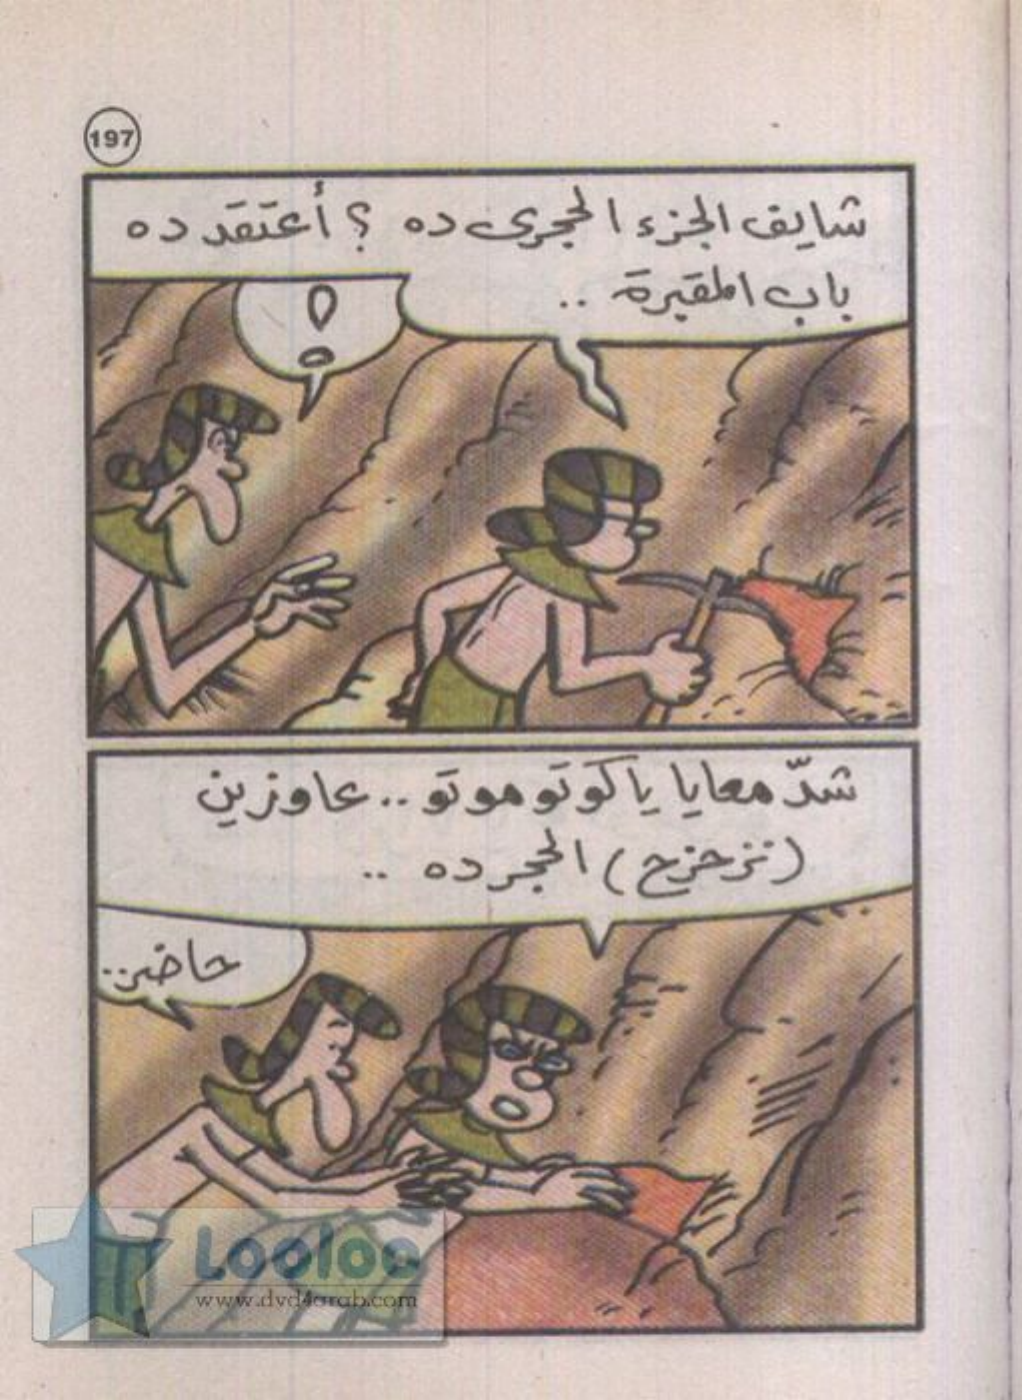 197
شايف الجزء الحجرى ده ؟ أعتقد ده
باب المقبرة ..
!
شدّ معايا يا كوتو موتو .. عاوزين
(نزحزح) الحجر ده ..
حاضر..
Looloo
www.dvd4arab.com